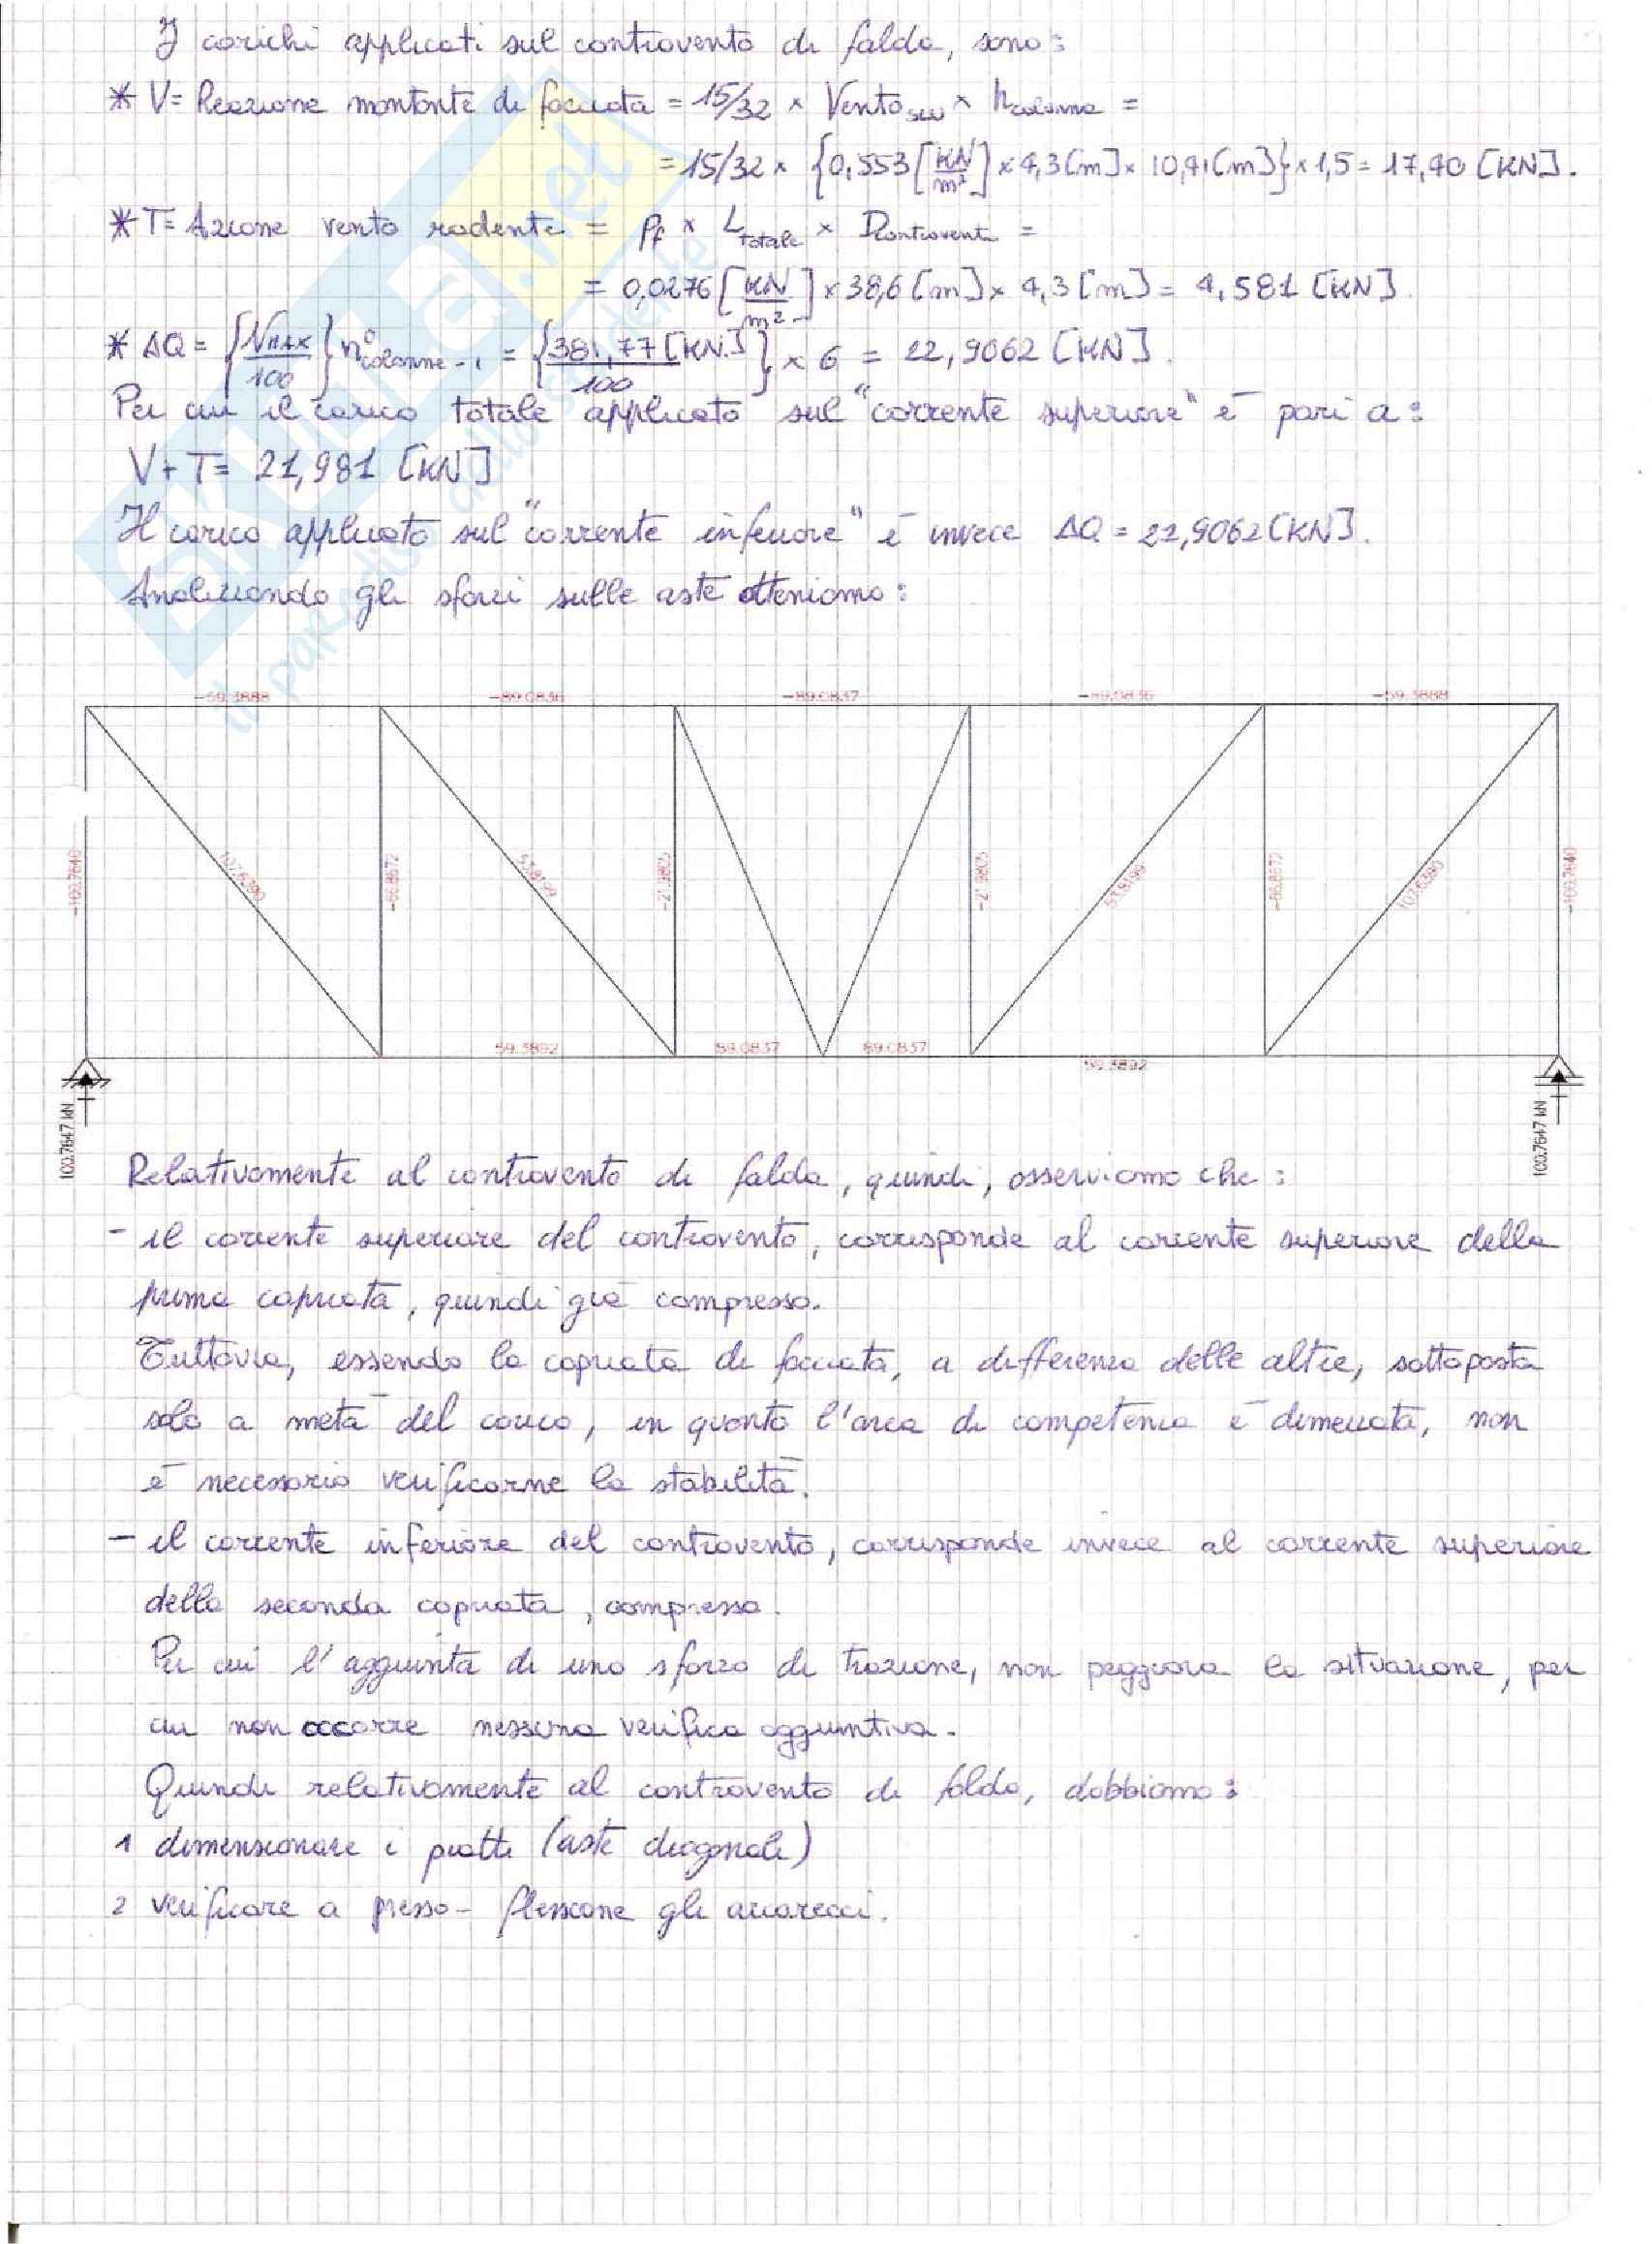 I carichi applicati sul controvento di falda, sono:
* V = Reazione montante di facciata = 15/32 × Vento SLU × h colonna =
= 15/32 × {0,553 [KN/m²] × 4,3 [m] × 10,41 [m]} × 1,5 = 17,40 [KN].
* T = Azione vento radente = Pf × L totale × D controventi =
= 0,0276 [KN/m²] × 38,6 [m] × 4,3 [m] = 4,581 [KN].
* ΔQ = {N MAX/100} n° colonne-1 = {381,77 [KN]/100} × 6 = 22,9062 [KN].
Per cui il carico totale applicato sul "corrente superiore" è pari a:
V + T = 21,981 [KN]
Il carico applicato sul "corrente inferiore" è invece ΔQ = 22,9062 [KN].
Analizzando gli sforzi sulle aste otteniamo:
-59.3888 -89.0836 -89.0837 -89.0836 -59.3888
-100.7640 107.6390 -66.8672 53.8199 -21.9805 -21.9805 53.8199 -66.8672 107.6390 -100.7640
59.3892 89.0837 89.0837 59.3892
100.7647 kN 100.7647 kN
Relativamente al controvento di falda, quindi, osserviamo che:
- il corrente superiore del controvento, corrisponde al corrente superiore della
prima capriata, quindi già compresso.
Tuttavia, essendo la capriata di facciata, a differenza delle altre, sottoposta
solo a metà del carico, in quanto l'area di competenza è dimezzata, non
è necessario verificarne la stabilità.
- il corrente inferiore del controvento, corrisponde invece al corrente superiore
della seconda capriata, compresso.
Per cui l'aggiunta di uno sforzo di trazione, non peggiora la situazione, per
cui non occorre nessuna verifica aggiuntiva.
Quindi relativamente al controvento di falda, dobbiamo:
1 dimensionare i piatti (aste diagonali)
2 verificare a presso-flessione gli arcarecci.
SKUOLA.net
il paradiso dello studente